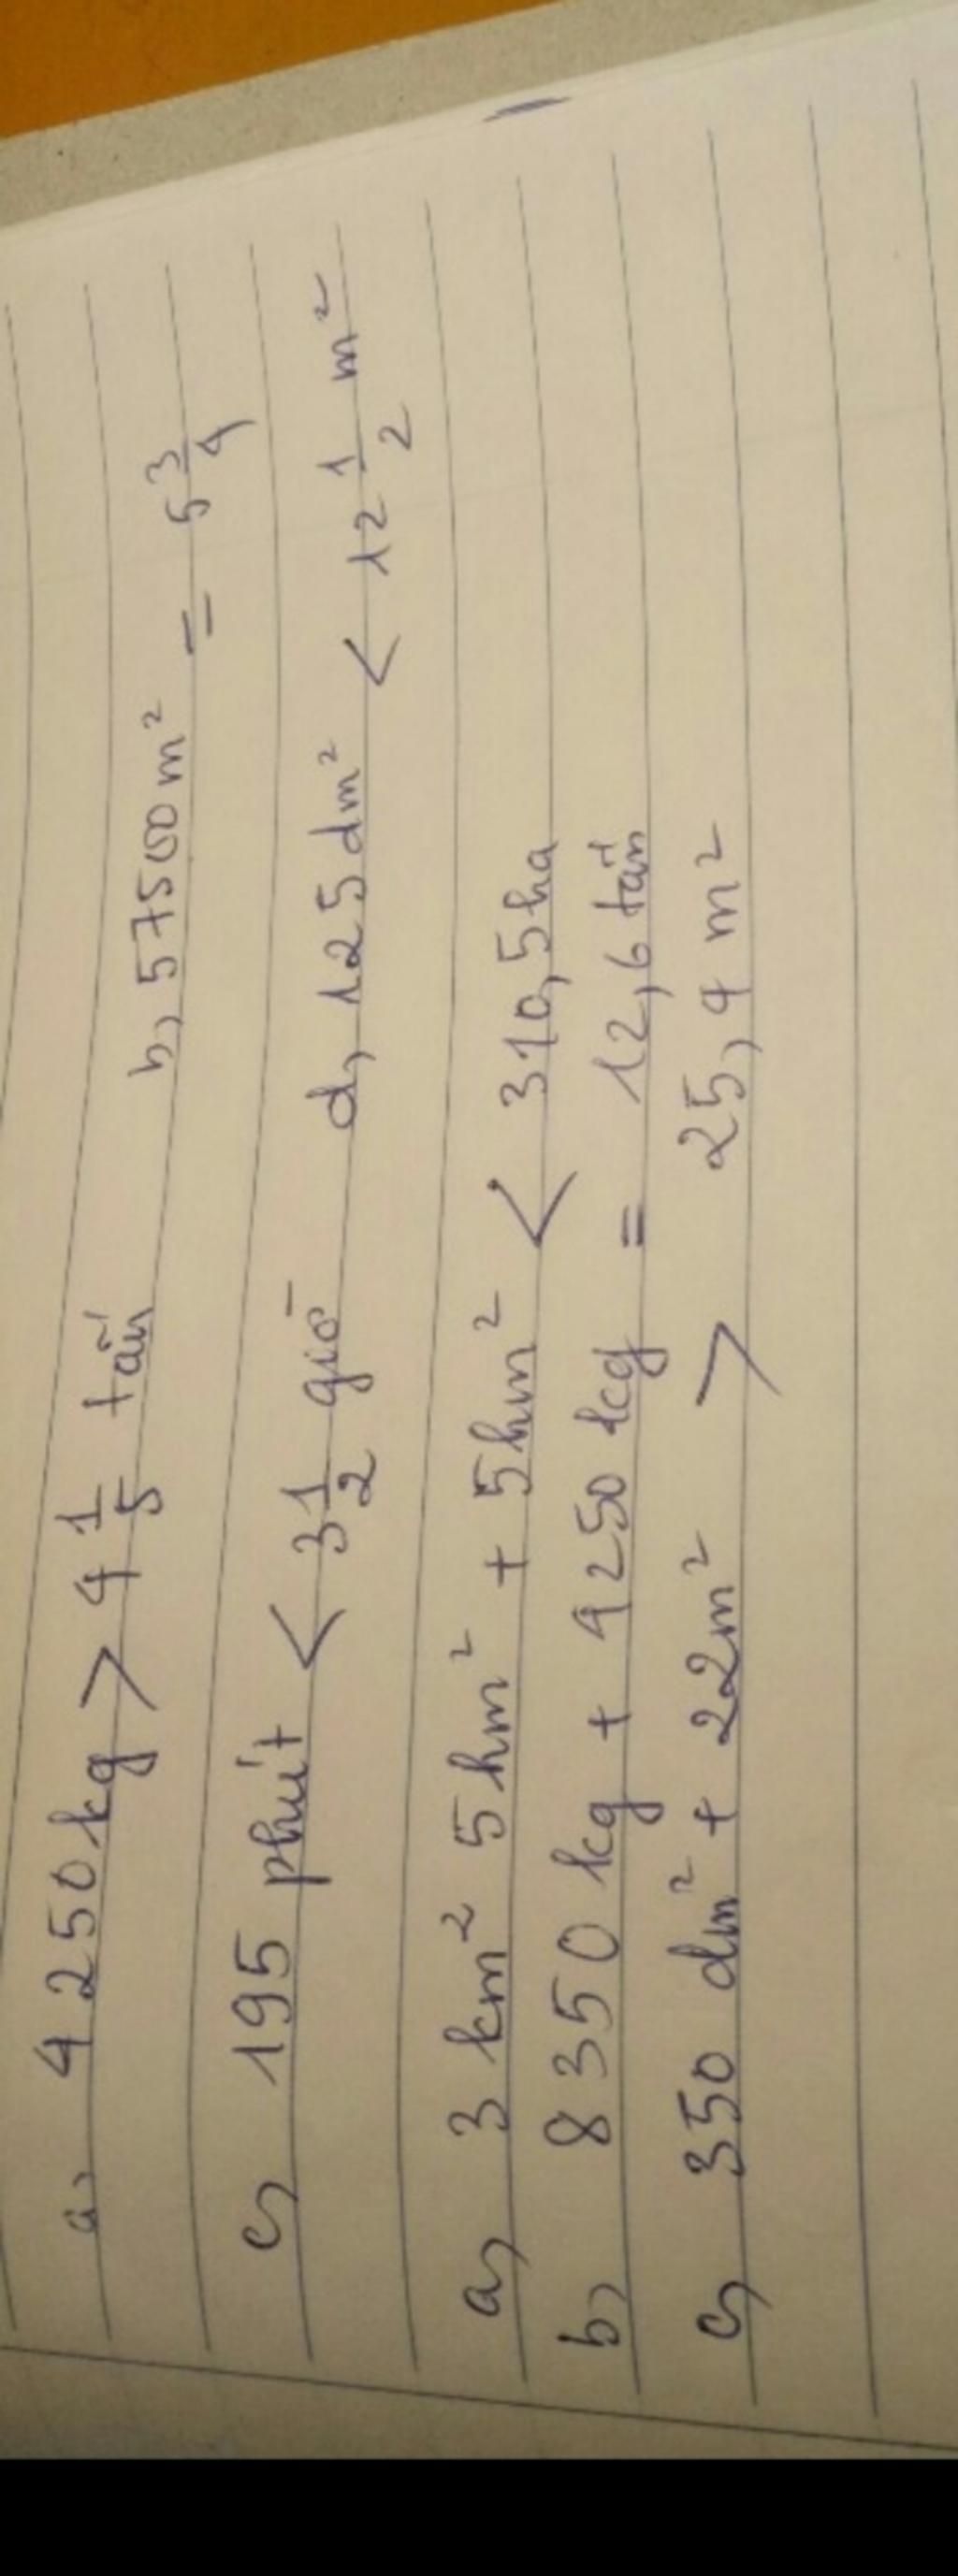 a, 4 250 kg > 4 1/5 tấn b, 57500 m² = 5 3/4
c, 195 phút < 3 1/2 giờ d, 125 dm² < 12 1/2 m²
a, 3 km² 5 hm² + 5hm² < 310,5ha
b, 8 350 kg + 4250 kg = 12,6 tấn
c, 350 dm² + 22m² > 25,4 m²